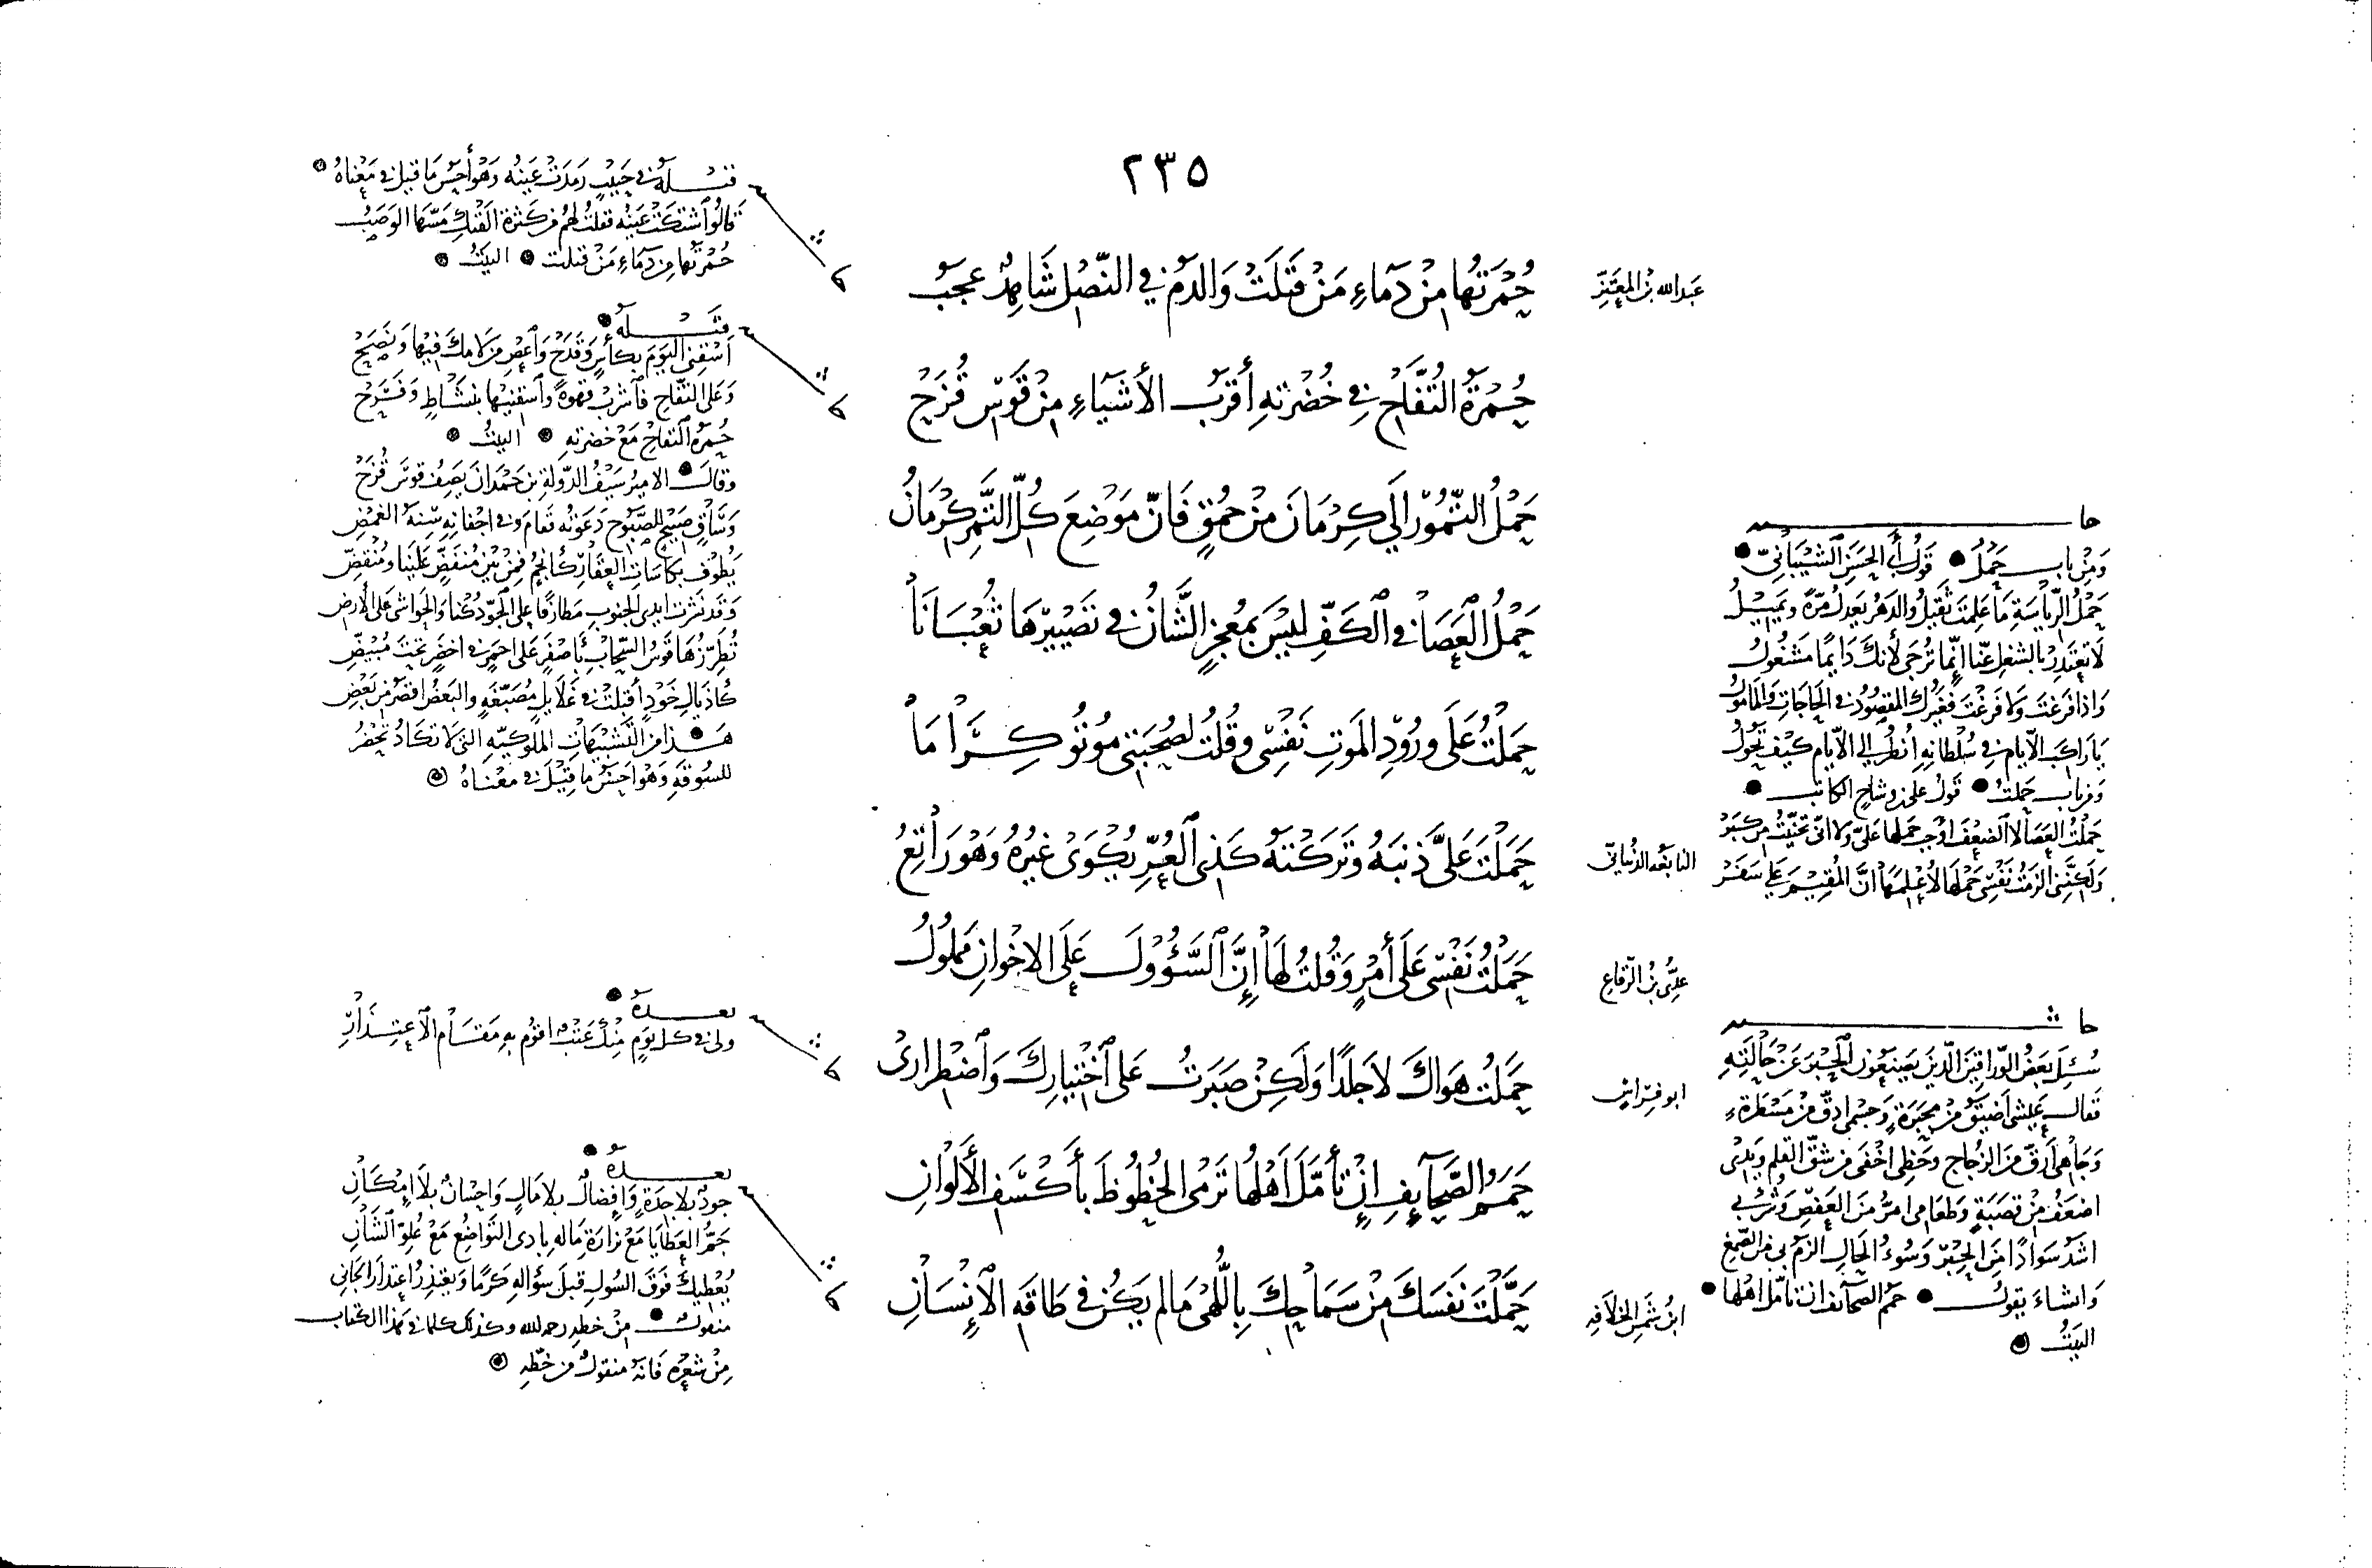 ٢٣٥
عبد الله بن المعتز
حُمْرَتُها مِنْ دِمَاءِ مَنْ قَتَلَتْ وَالدَّمُ في النَّصْلِ شَاهِدٌ عَجَبُ
حُمْرَةُ التُّفَّاحِ في خُضْرَتِهِ أَقْرَبُ الأَشْيَاءِ مِنْ قَوْسِ قُزَحْ
حَمْلُ التُّمُوْرِ إلَى كِرْمَانَ مِنْ حُمُقٍ فَانَّ مَوْضِعَ كُلِّ التَّمْرِ كِرْمَانُ
حَمْلُ الْعَصَا في الْكَفِّ لَيْسَ بمُعْجِزٍ الشَّانُ في تَصْييْرِهَا ثُعْبَانَا
حَمَلْتُ عَلَى وُرُوْدِ المَوتِ نَفْسِى وقُلْتُ لصُحْبَتِى مُوْتُو كِرَامَا
النابغه الذبيانى
حَمَلْتَ عَلَىَّ ذَنْبَهُ وَتَرَكْتَهُ كَذِى الْعُرِّ يُكْوَى غَيْرُهُ وَهْوَ رَاتِعُ
على بن الرقاع
حَمَلْتُ نَفْسِى عَلَى أَمْرٍ وَقُلْتُ لَهَا إِنَّ السَّؤُوْلَ عَلَى الاخْوانِ مَمْلُوْلُ
ابو فراس
حَمَلْتُ هَوَاكَ لا جَلَدًا وَلَكِنْ صَبَرْتُ عَلَى اخْتِيارِكَ وَاضْطِرارِى
حُمَمُ الصَّحَآيِفِ انْ تأَمَّلَ اَهْلُها تَرْمى الحُظُوظَ بأَكْسَفِ الأَلْوَانِ
ابن شمس الخلافه
حَمَّلْتَ نَفْسَكَ مِنْ سَمَاحِكَ بِاللُّهَى مَالم يَكُنْ في طَاقَهِ الاِنْسَانِ
حا
وَمِنْ باب حَمْلُ قَوْلُ أَبى الحَسَنِ الشَّيْبَانِىّ
حَمْلُ الرِّيَاسَةِ مَا عَلِمْتَ ثَقِيْلُ والدَهْرُ يَعْدِلُ مَرّةً وَيَمِيْلُ
لا تعْتَذِرْ بالشغلِ عَنّا إنَّما تُرْجَى لأَنكَ دَايمًا مَشْغُولُ
وَاذا فَرَغْتَ وَلا فَرَغْتَ فَغَيْرُكَ المَقصُودُ في الحَاجَاتِ وَالمَامُولُ
يَا رَاكبَ الأيام في سُلْطَانهِ انْظُر إلى الأيامِ كَيْفَ تَحُولُ
وَمن باب حَمَلتُ قَولُ على بن وشاح الكاتب
حَمَلْتُ العَصَا لا الضعْفُ اوْجَبَ حَملَها عَلىّ وَلا انّى تحَنّيْتُ من كِبَرْ
وَلَكِنَّنِى الزَمْتُ نَفْسِى حَمْلَها لأُعْلِمَهَا انَّ المُقِيْمَ عَلَى سَفَرْ
حا
سُئِلَ بَعْضُ الورّاقِيْنَ الّذينَ يَصْنَعُونَ الحِبْرَ عَنْ حَالَتِهِ
فَقالَ عَيْشى اَضيَقُ مِنْ مِحْبَرَةٍ وَجسْمِى ادَقُّ مِنْ مَسْطَرَةٍ
وَجَاهى أَرَقُّ منَ الزُجاجِ وَحَظِى اخْفَى مِن شقِّ القلمِ وَيَدِى
اضعَفُ مِنْ قصَبَةٍ وَطعَامى امَرُّ مِنَ العَفْصِ وَشُرْبى
اشَدّ سَوَادًا مِنَ الحِبْرِ وَسُوءُ الحَالِ الزَمُ بى مِنَ الصَّمْغِ
وَانشاءَ يقولُ حُمَمُ الصحَآئف ان تامّل اهْلها
البَيتُ
قبْلهُ في حَبيْبٍ رَمَدَتْ عَينُه وَهْوَ أحسَنُ مَا قيلَ في مَعْناهُ
قالُوا اشتكَتْ عَيْنُه فقلتُ لهم من كَثْرَةِ القَتْلِ مَسَّها الوَصَبُ
حُمرَتُها مِن دِمَاءِ مَنْ قتلت البَيتُ
قبْلهُ
اَسْقِنِى اليَوْمَ بكأسٍ وَقَدَحْ وَاعْصِ مَن لامكَ فيْها وَنَصَحْ
وَعَلَى التفّاحِ فاشربْ قهوةً وَاسقِنيها بنَشاطٍ وَفَرَحْ
حُمرَةُ التفاحِ مَعْ خضرتهِ البيتُ
وقالَ الاميرُ سَيْفُ الدّولَةِ بن حَمْدَانَ يَصِفُ قوسَ قُزَحَ
وَسَاقٍ صَبِيْحٍ للصَّبُوْحِ دَعَوْتُه فَقامَ وفى اجْفانِهِ سِنةُ الغمْضِ
يَطُوفُ بكاسَاتِ العُقارِ كأنجُمٍ فَمِنْ بَيْنِ مُنفَضٍّ عَلَينا ومُنْقَضِّ
وَقَد نَشرَت ايدى الجنوبِ مَطَارِفًا عَلَى الجَوّ دُكْنا وَالحَواشى عَلَى الأرضِ
تُطَرِّزُها قَوسُ السّحَابِ بأصْفَرٍ عَلى احمَرٍ في اخضَرٍ تحتَ مُبْيَضِّ
كأذيَالِ خَوْدٍ أقبلَتْ في غَلَايلٍ مُصَبّغَةٍ والبَعْضُ اقصَرُ من بَعْضِ
هَذا من التَشْبيهَاتِ المُلُوكيّهِ التى لا تكَادُ تَحْضُرُ
للسُوقَهِ وَهْوَ احسَنُ ما قِيْلَ في مَعْناهُ
بعْدهُ
ولى في كل يَومٍ مِنْكَ عَتْبٌ اقوُم بهِ مَقامَ الاعْتِذارِ
بعْدهُ
جودٌ بلا جِدَةٍ وَافضالٌ بلا مَالٍ وَاحسَانٌ بلَا امْكَانِ
جَمُّ العَطايَا مَعْ نزارَةِ مَاله بادى التوَاضُعِ مَعْ عُلوّ الشَانِ
يُعْطِيكَ فَوْقَ السُولِ قبلَ سؤالهِ كَرَمًا وَيعْتذرُ اعتذارَ الجَانِى
منقولٌ مِنْ خطهِ رحمه الله وكذلك كلما في هَذا الكتاب
مِنْ شِعْرِهِ فَانّه منقولٌ من خَطّهِ